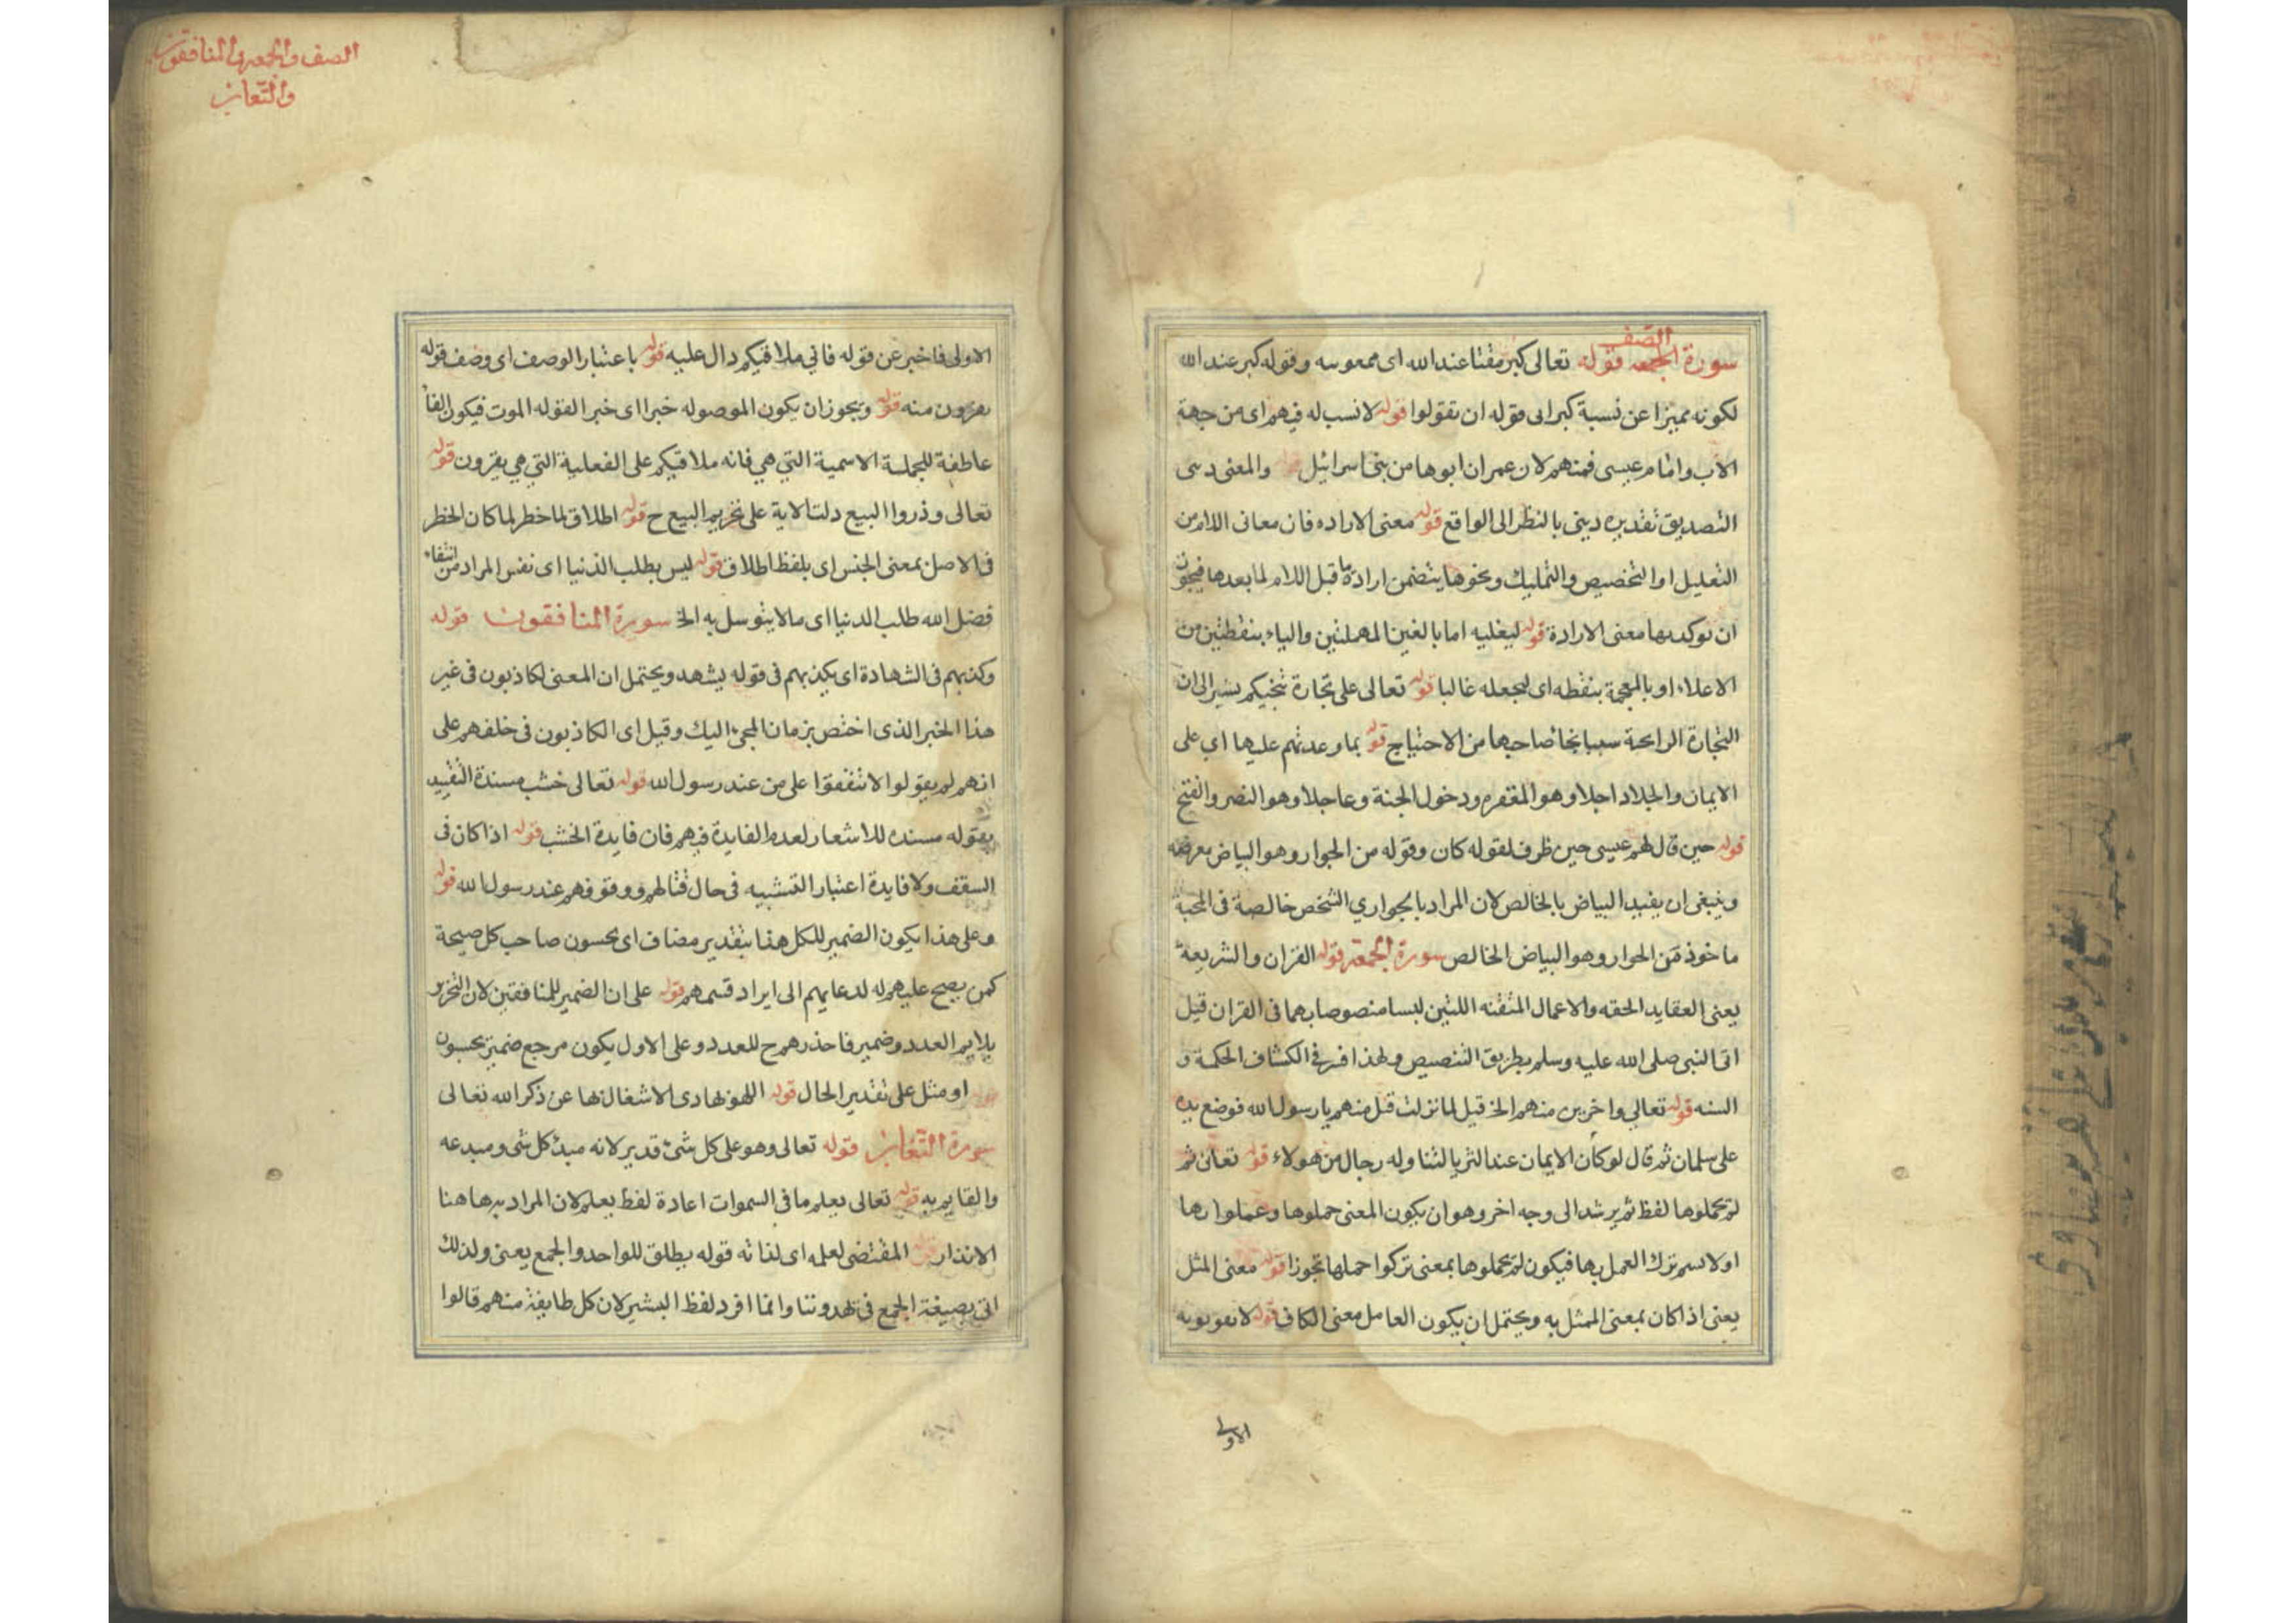 الصف
سورة الجمعه قوله تعالى كبر مقتا عند الله اى ممعوسه وقوله كبر عند الله
لكونه مميزا عن نسبة كبر الى قوله ان تقولوا قوله لا نسب له فيهم اى من جهة
الاب وامام عيسى فمنهم لان عمران ابوها من بنى اسرائيل والمعنى دسى
التصديق تقديره دينى بالنظر الى الواقع قوله معنى الاراده فان معانى اللام من
التعليل او التخصيص والتمليك ونحوها يتضمن ارادة ما قبل اللام لما بعدها فيجوز
ان توكد بها معنى الارادة قوله ليغليه اما بالغين المهملتين والياء بنقطتين من
الاعلاء او بالمعجمة بنقطه اى ليجعله غالبا قوله تعالى على تجارة تنجيكم يشير الى ان
التجارة الرابحة سببا نجا صاحبها من الاحتياج قوله بما وعدتهم عليها اي على
الايمان والجلاد اجلا وهو المغفره ودخول الجنة وعاجلا وهو النصر والفتح
قوله حين قال لهم عيسى حين ظرف لقوله كان وقوله من الجوار وهو البياض بعرضه
وينبغى ان يقيد البياض بالخالص لان المراد بالجواري الشخص خالصة فى المحبة
ماخوذ من الحوار وهو البياض الخالص سورة الجمعة قوله القران والشريعة
يعنى العقايد الحقه والاعمال المتقنه اللتين ليسا منصوصا بهما فى القران قيل
اتى النبى صلى الله عليه وسلم بطريق التنصيص ولهذا افر فى الكشاف الحكمة و
السنه قوله تعالى واخرين منهم الخ قيل لما نزلت قيل منهم يا رسول الله فوضع يده
على سلمان ثم قال لو كان الايمان عند الثريا لتناوله رجال من هولاء قوله تعالى ثم
لم يحملوها لفظ ثم يرشد الى وجه اخر وهو ان يكون المعنى حملوها وعملوا بها
اولا ثم ترك العمل بها فيكون لم يحملوها بمعنى تركوا حملها تجوزا قوله معنى المثل
يعنى اذا كان بمعنى الممثل به ويحتمل ان يكون العامل معنى الكاف قوله لا تفوتونه
الاولى
الصف والجمعه والمنافقون
والتغابن
الاولى فاخبر عن قوله فانى ملاقيكم دال عليه قوله باعتبار الوصف اى وصف قوله
تفرون منه قوله ويجوز ان يكون الموصوله خبرا اى خبرا لقوله الموت فيكون الفا
عاطفة للجملة الاسمية التي هي فانه ملاقيكم على الفعلية التي هي يفرون قوله
تعالى وذروا البيع دلت الاية على تحريم البيع ح قوله اطلاق لما خطر لما كان الخطر
فى الاصل بمعنى الجنس اى بلفظ اطلاق قوله ليس بطلب الدنيا اى نفس المراد من ابتقاء
فضل الله طلب الدنيا اى مالا يتوسل به الخ سورة المنافقون قوله
وكذبهم فى الشهادة اى يكذبهم فى قوله يشهد ويحتمل ان المعنى لكاذبون فى غير
هذا الخبر الذى اختص بزمان المجئ اليك وقيل اى الكاذبون فى خلفهم على
انهم لم يقولوا لا تنفقوا على من عند رسول الله قوله تعالى خشب مسندة التقييد
بقوله مسنده للاشعار لعدم الفايدة فيهم فان فايدة الخشب قوله اذا كان فى
السقف ولا فايدة اعتبار التشبيه فى حال قتالهم ووقوفهم عند رسول الله قوله
وعلى هذا يكون الضمير للكل هفا بتقدير مضاف اى يحسون صاحب كل صيحة
كمن يصح عليهم له لدعايهم الى ايراد قسمهم قوله على ان الضمير للمنافقين لان التخزير
يلايم العدد وضمير فاحذرهم ح للعدد وعلى الاول يكون مرجع ضمير يحسبون
او مثل على تقدير الحال قوله اللهو بها دى الاشغال بها عن ذكر الله تعالى
سورة التغابن قوله تعالى وهو على كل شئ قدير لانه مبدئ كل شى ومبدعه
والقايم به قوله تعالى يعلم ما فى السموات اعادة لفظ يعلم لان المراد بها هنا
الانذار قوله المقتضى لعلمه اى لذاته قوله يطلق للواحد والجمع يعنى ولذلك
اتى بصيغة الجمع فى يهدوننا وانما افرد لفظ البشير لان كل طايفة منهم قالوا